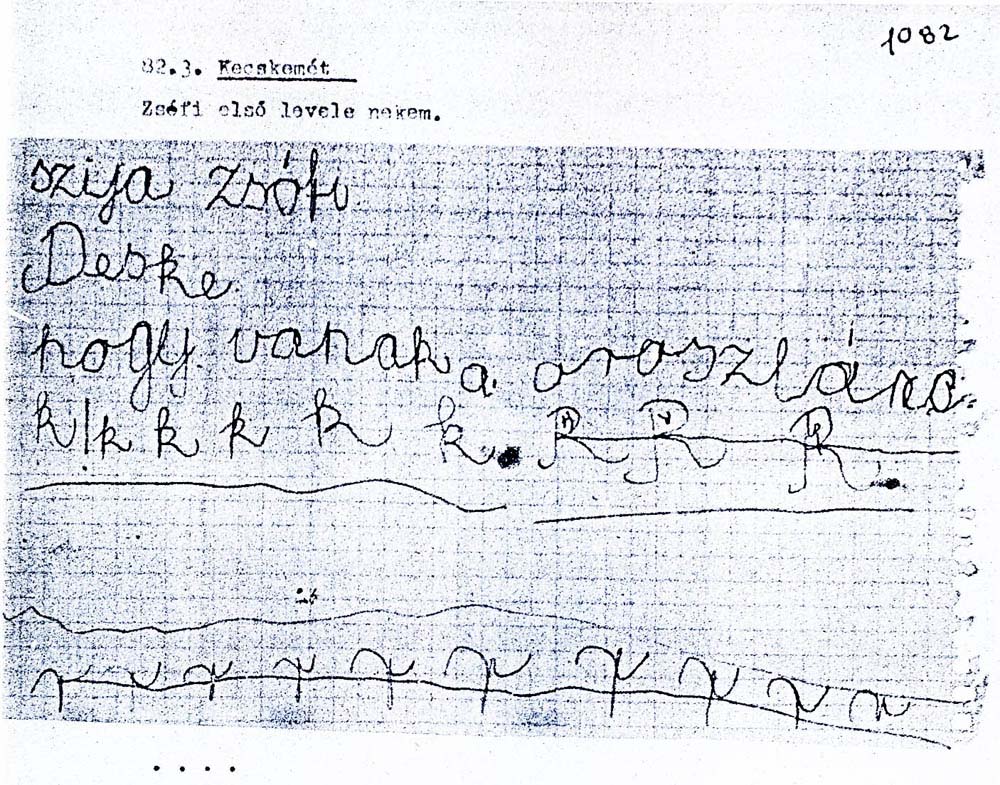 1082
82.3. Kecskemét
Zsófi első levele nekem.
szija Zsófi
Deske
hogy vanak a oroszláno
k k k k k k. R R R.